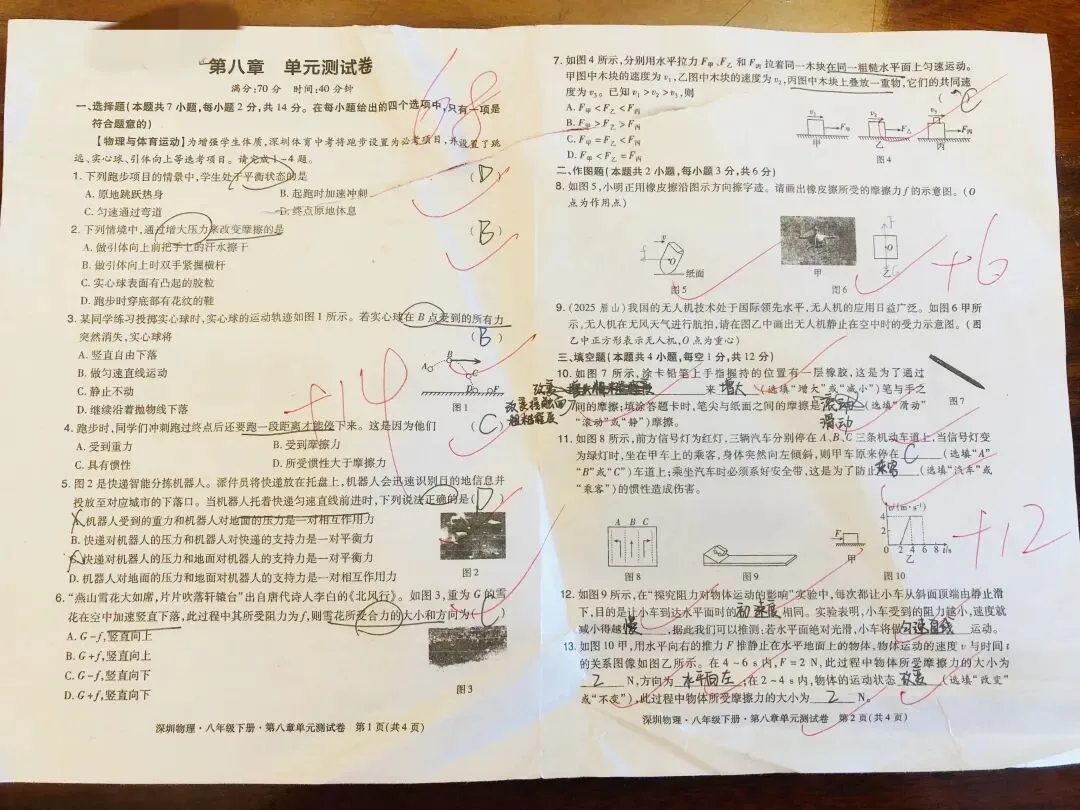 第八章 单元测试卷
满分:70分 时间:40分钟
68
一、选择题(本题共7小题,每小题2分,共14分。在每小题给出的四个选项中,只有一项是
符合题意的)
【物理与体育运动】为增强学生体质,深圳体育中考将跑步设置为必考项目,并设置了跳
远、实心球、引体向上等选考项目。请完成1~4题。
1. 下列跑步项目的情景中,学生处于平衡状态的是 (D)
A. 原地跳跃热身 B. 起跑时加速冲刺
C. 匀速通过弯道 D. 终点原地休息
2. 下列情境中,通过增大压力来改变摩擦的是 (B)
A. 做引体向上前把手上的汗水擦干
B. 做引体向上时双手紧握横杆
C. 实心球表面有凸起的胶粒
D. 跑步时穿底部有花纹的鞋
3. 某同学练习投掷实心球时,实心球的运动轨迹如图1所示。若实心球在B点受到的所有力
突然消失,实心球将 (B)
A. 竖直自由下落
B. 做匀速直线运动
C. 静止不动
D. 继续沿着抛物线下落
A B C D E
图1
+14
4. 跑步时,同学们冲刺跑过终点后还要跑一段距离才能停下来。这是因为他们 (C)
A. 受到重力 B. 受到摩擦力
C. 具有惯性 D. 所受惯性大于摩擦力
5. 图2是快递智能分拣机器人。派件员将快递放在托盘上,机器人会迅速识别目的地信息并
投放至对应城市的下落口。当机器人托着快递匀速直线前进时,下列说法正确的是(D)
A. 机器人受到的重力和机器人对地面的压力是一对相互作用力
B. 快递对机器人的压力和机器人对快递的支持力是一对平衡力
C. 快递对机器人的压力和地面对机器人的支持力是一对平衡力
D. 机器人对地面的压力和地面对机器人的支持力是一对相互作用力
图2
6. “燕山雪花大如席,片片吹落轩辕台”出自唐代诗人李白的《北风行》。如图3,重为G的雪
花在空中加速竖直下落,此过程中其所受阻力为f,则雪花所受合力的大小和方向为(C)
A. G-f,竖直向上
B. G+f,竖直向上
C. G-f,竖直向下
D. G+f,竖直向下
图3
深圳物理·八年级下册·第八章单元测试卷 第1页(共4页)
7. 如图4所示,分别用水平拉力F甲、F乙和F丙拉着同一木块在同一粗糙水平面上匀速运动。
甲图中木块的速度为v₁,乙图中木块的速度为v₂,丙图中木块上叠放一重物,它们的共同速
度为v₃。已知v₁>v₂>v₃,则 (C)
A. F甲<F乙<F丙
B. F甲>F乙>F丙
C. F甲=F乙=F丙
D. F甲=F乙<F丙
v₁ F甲 v₂ F乙 v₃ F丙
甲 乙 丙
图4
二、作图题(本题共2小题,每小题3分,共6分)
8. 如图5,小明正用橡皮擦沿图示方向擦字迹。请画出橡皮擦所受的摩擦力f的示意图。(O
点为作用点)
v f O 纸面
图5
甲 F O G 乙
图6
+6
9. (2025眉山)我国的无人机技术处于国际领先水平,无人机的应用日益广泛。如图6甲所
示,无人机在无风天气进行航拍,请在图乙中画出无人机静止在空中时的受力示意图。(图
乙中正方形表示无人机,O点为重心)
三、填空题(本题共4小题,每空1分,共12分)
10. 如图7所示,涂卡铅笔上手指握持的位置有一层橡胶,这是为了通过
改变接触面粗糙程度 来 增大 (选填“增大”或“减小”)笔与手之
间的摩擦;填涂答题卡时,笔尖与纸面之间的摩擦是 滑动 (选填“滑动”
“滚动”或“静”)摩擦。
图7
11. 如图8所示,前方信号灯为红灯,三辆汽车分别停在A、B、C三条机动车道上,当信号灯变
为绿灯时,坐在甲车上的乘客,身体突然向左倾斜,则甲车原来停在 C (选填“A”
“B”或“C”)车道上;乘坐汽车时必须系好安全带,这是为了防止 乘客 (选填“汽车”或
“乘客”)的惯性造成伤害。
A B C
图8
图9
F 甲
v/(m·s⁻¹) 4 2 0 2 4 6 8 t/s 乙
图10
+12
12. 如图9所示,在“探究阻力对物体运动的影响”实验中,每次都让小车从斜面顶端由静止滑
下,目的是让小车到达水平面时的 初速度 相同。实验表明,小车受到的阻力越小,速度就
减小得越 慢 ,据此我们可以推测:若水平面绝对光滑,小车将做 匀速直线 运动。
13. 如图10甲,用水平向右的推力F推静止在水平地面上的物体,物体运动的速度v与时间t
的关系图像如图乙所示。在4~6 s内,F=2 N,此过程中物体所受摩擦力的大小为
2 N,方向为 水平向左 ;在2~4 s内,物体的运动状态 改变 (选填“改变”
或“不变”),此过程中物体所受摩擦力的大小为 2 N。
深圳物理·八年级下册·第八章单元测试卷 第2页(共4页)